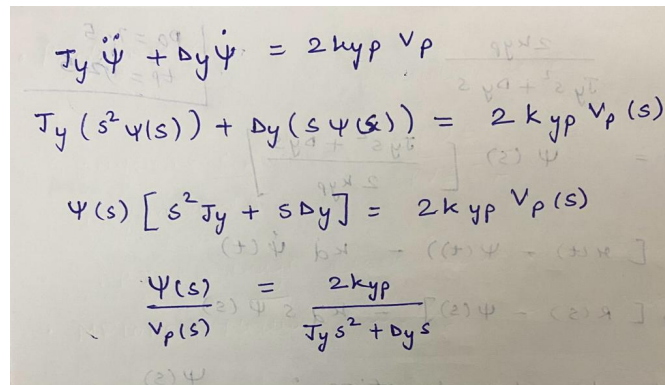 Jy ψ̈ + Dy ψ̇ = 2kyp Vp
Jy (s² ψ(s)) + Dy (s ψ(s)) = 2 kyp Vp (s)
ψ(s) [ s² Jy + s Dy ] = 2kyp Vp (s)
ψ(s) / Vp (s) = 2kyp / Jy s² + Dy s